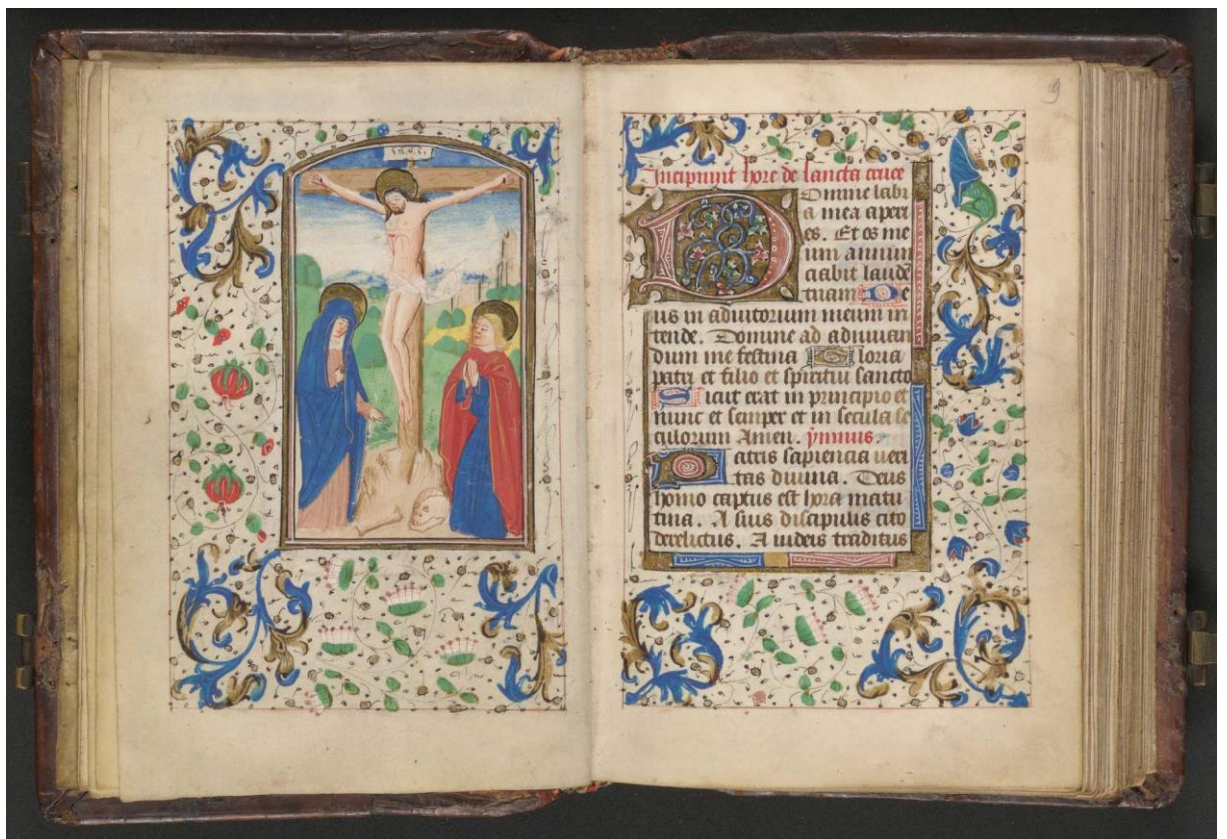 I.N.R.I.
9
Incipiunt hore de sancta cruce
Domine labi
a mea aperi
es. Et os me
um annun
ciabit laudē
tuam De
us in adiutorium meum in
tende. Domine ad adiuuan
dum me festina Gloria
patri et filio et spiritui sancto
Sicut erat in principio et
nunc et semper et in secula se
culorum Amen. ymnus.
Patris sapiencia ueri
tas diuina. Deus
homo captus est hora matu
tina. A suis discipulis cito
derelictus. A iudeis traditus